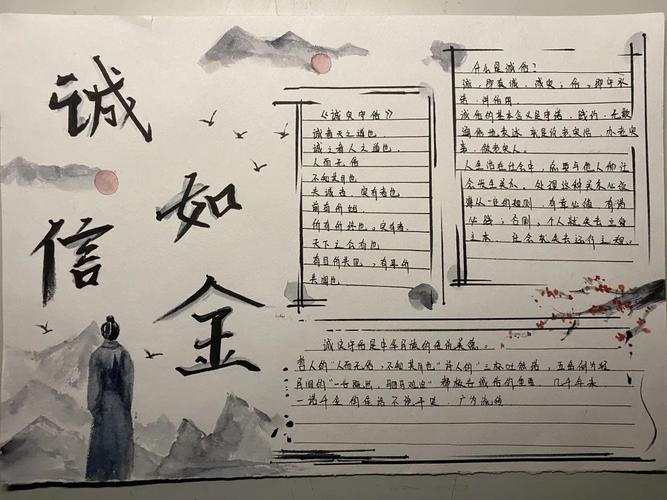 诚信
如金
《诚实守信》
诚者天之道也
诚之者人之道也
人而无信
不知其可也
夫诚者，实有者也
前有所始
后有所终也。实有者
天下之公有也
有目所共见，有耳所
共闻也
什么是诚信？
诚，即真诚、诚实；信，即守承
诺、讲信用。
诚信的基本含义是守诺、践约、无欺
通俗地表达，就是说老实话、办老实
事、做老实人。
人生活在社会中，总要与他人和社
会发生关系。处理这种关系必须
遵从一定的规则，有章必循，有诺
必践；否则，个人就失去立身
之本，社会就失去运行之规。
诚实守信是中华民族的传统美德。
哲人的"人而无信，不知其可也"诗人的"三杯吐然诺，五岳倒为轻
民间的"一言既出，驷马难追"都极言诚信的重要。几千年来
一诺千金的佳话不绝于史，广为流传